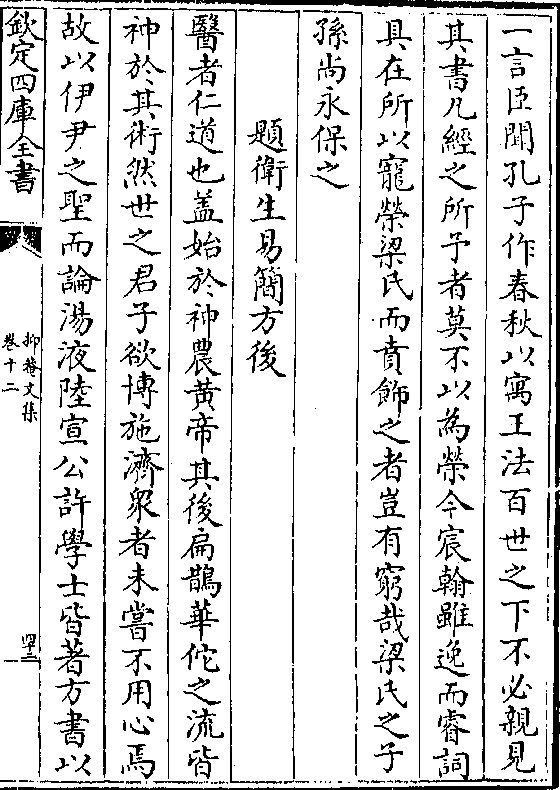 一言臣聞孔子作春秋以寓王法百世之下不必親見
其書凡經之所予者莫不以為榮今宸翰雖逸而睿詞
具在所以寵榮梁氏而賁飾之者豈有窮哉梁氏之子
孫尚永保之
題衛生易簡方後
醫者仁道也蓋始於神農黄帝其後扁鵲華佗之流皆
神於其術然世之君子欲博施濟衆者未嘗不用心焉
故以伊尹之聖而論湯液陸宣公許學士皆著方書以
欽定四庫全書
抑菴文集
卷十二
四十三